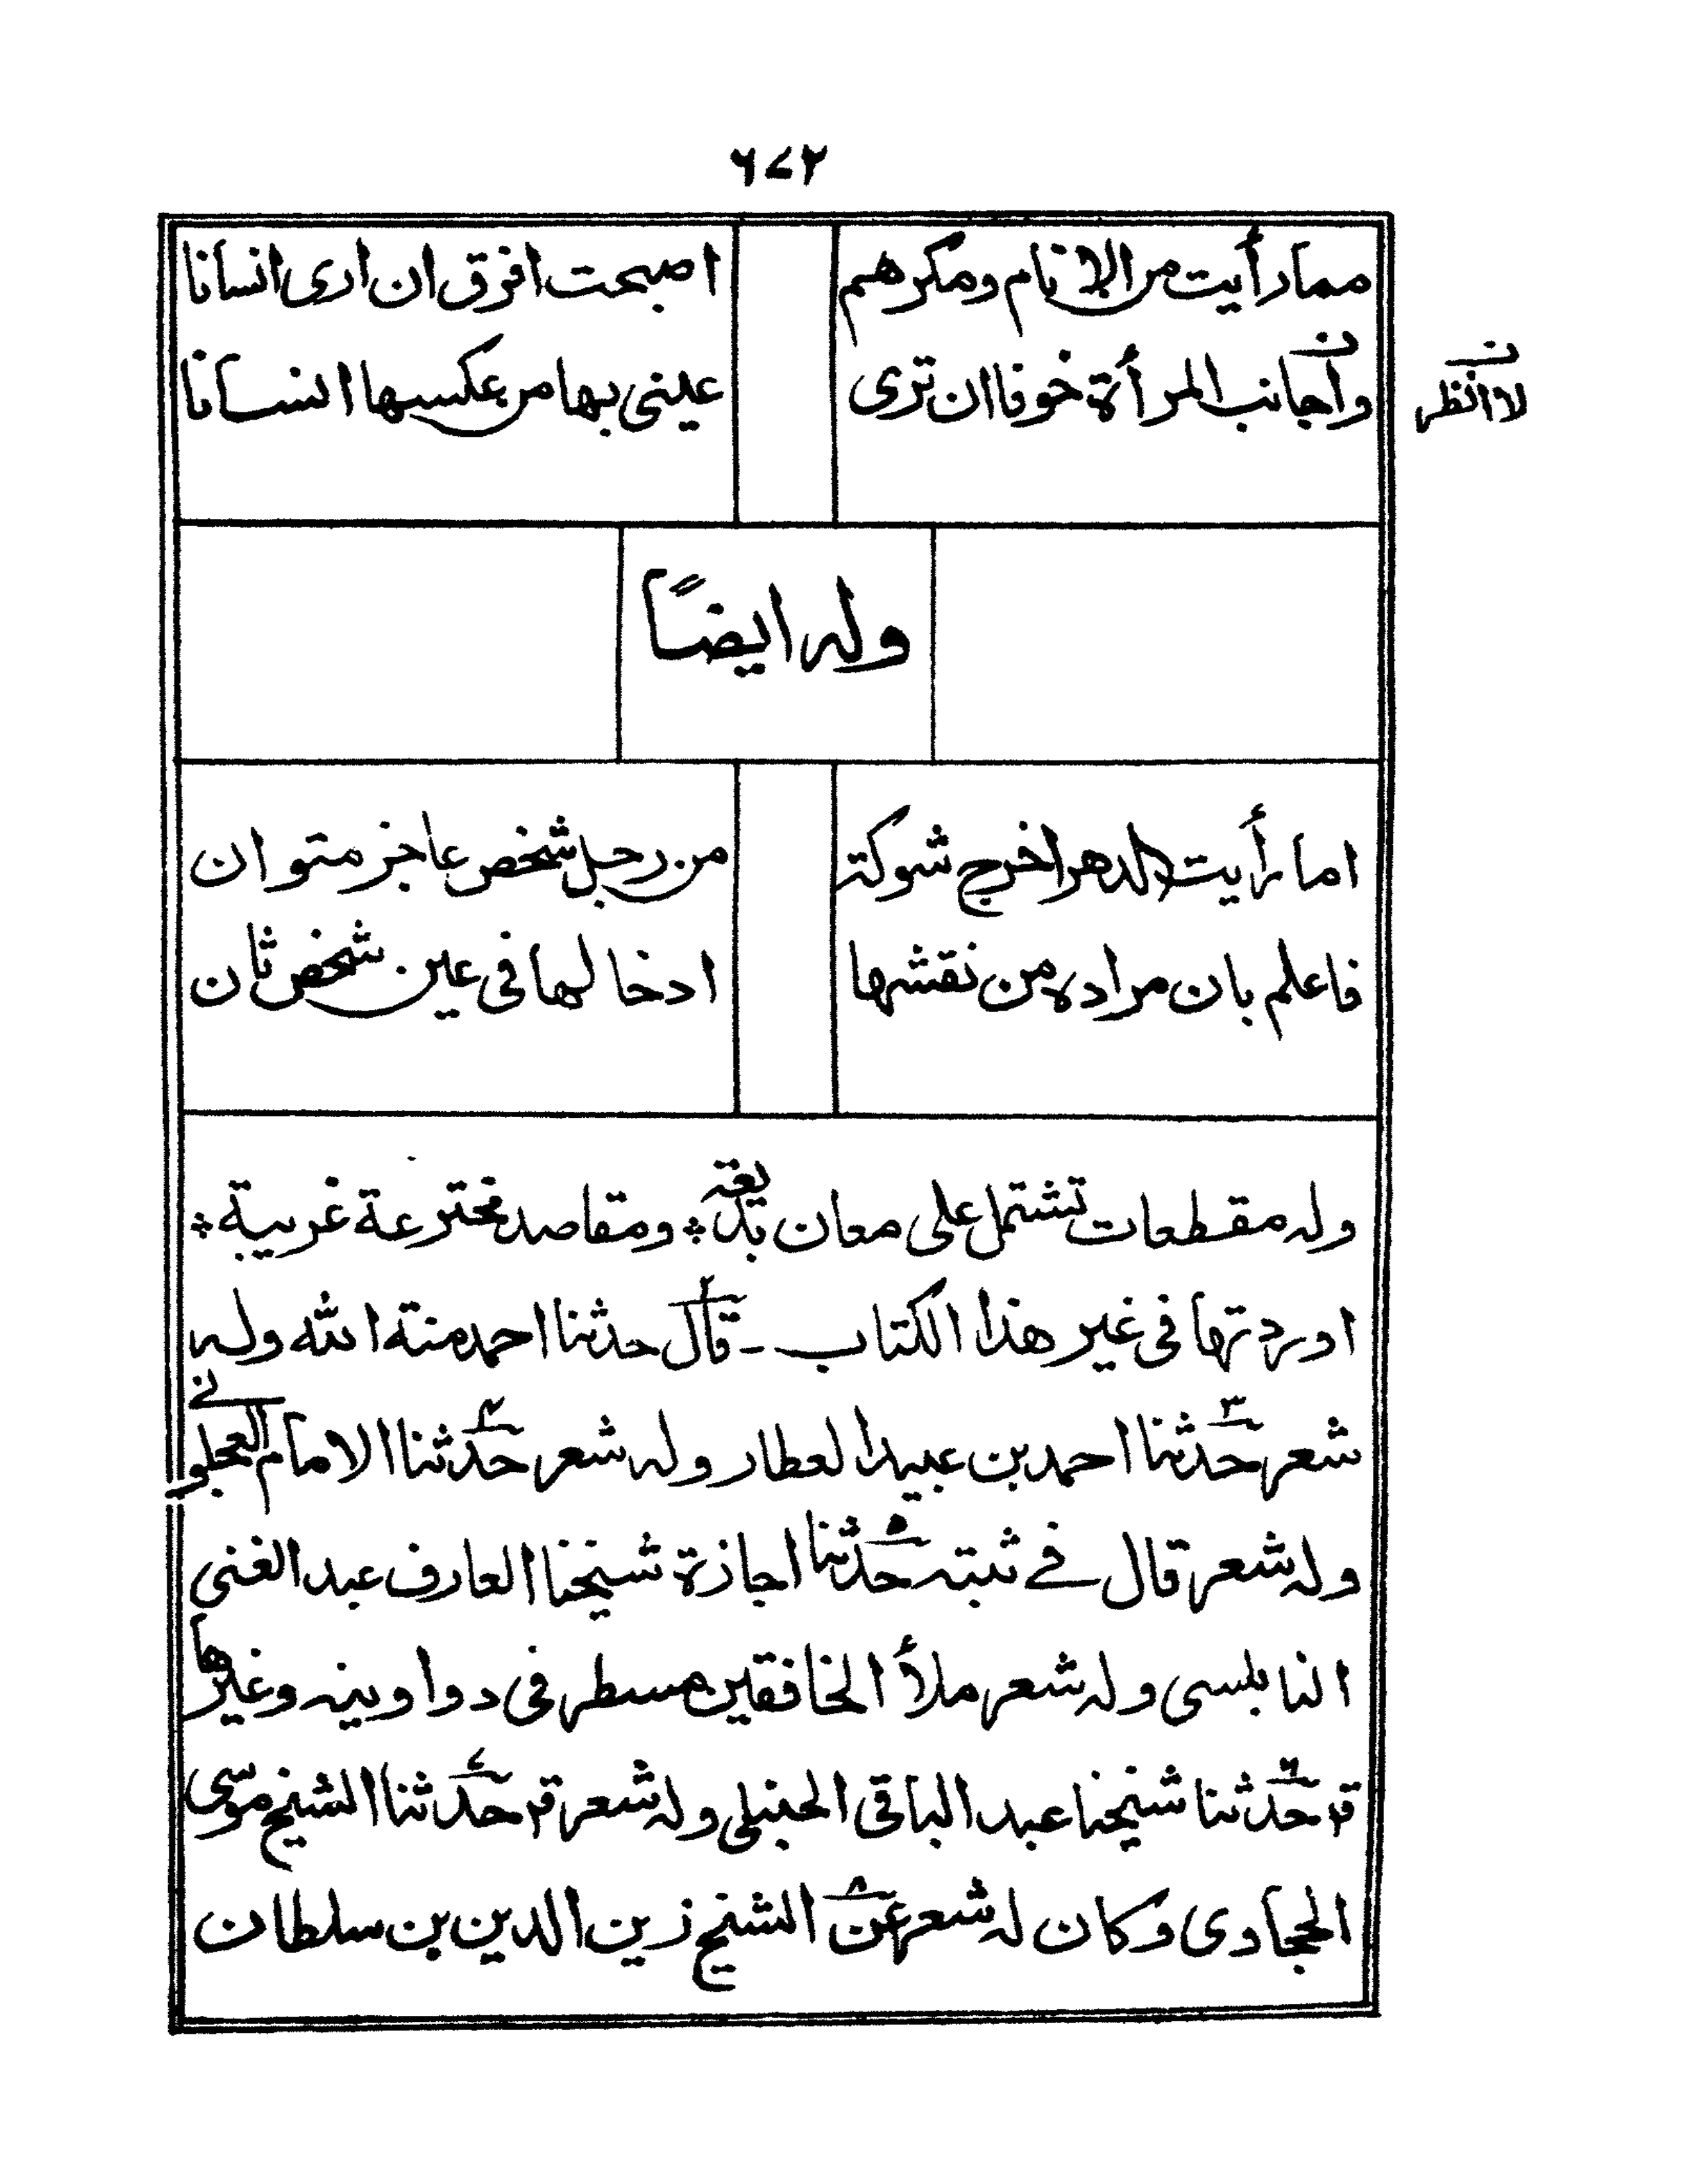 ٦٧٢
مما رأيت من الانام ومكرهم اصبحت افرق ان ارى انسانا
وأجانب المرأة خوفا ان ترى عينى بها من عكسها انسانا
ن
لا انظر
وله ايضاً
اما رأيت الدهر اخرج شوكة من رجل شخص عاجز متوان
فاعلم بان مراده من نقشها ادخالها فى عين شخص ثان
وله مقطعات تشتمل على معان بديعة ؞ ومقاصد مخترعة غريبة ؞
اوردتها فى غير هذا الكتاب ـ قال٢ حدثنا احمد منة الله وله
شعر حدثنا٣ احمد بن عبيد العطار وله شعر حدثنا٤ الامام العجلونے
وله شعر قال فے ثبته حدثنا٥ اجازة شيخنا العارف عبد الغنى
النابلسى وله شعر ملأ الخافقين مسطر فى دواوينه وغيرها
قم حدثنا٦ شيخنا عبد الباقى الحنبلى وله شعر قم حدثنا٧ الشيخ موسى
الحجاوى وكان له شعر عن٨ الشيخ زين الدين بن سلطان